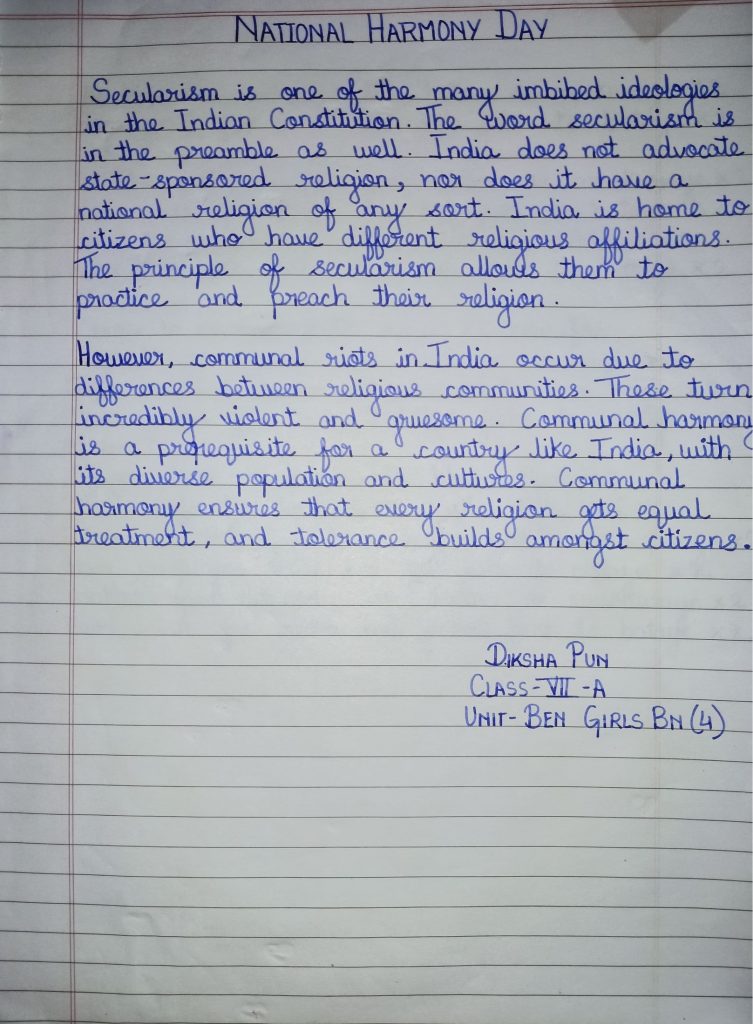 NATIONAL HARMONY DAY
Secularism is one of the many imbibed ideologies
in the Indian Constitution. The word secularism is
in the preamble as well. India does not advocate
state-sponsored religion, nor does it have a
national religion of any sort. India is home to
citizens who have different religious affiliations.
The principle of secularism allows them to
practice and preach their religion.
However, communal riots in India occur due to
differences between religious communities. These turn
incredibly violent and gruesome. Communal harmony
is a prerequisite for a country like India, with
its diverse population and cultures. Communal
harmony ensures that every religion gets equal
treatment, and tolerance builds amongst citizens.
DIKSHA PUN
CLASS-VII-A
UNIT- BEN GIRLS BN (4)